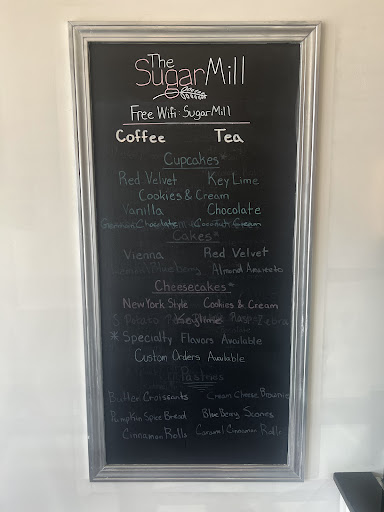 The
Sugar Mill
Free Wifi: SugarMill
Coffee Tea
Cupcakes*
Red Velvet Key Lime
Cookies & Cream
Vanilla Chocolate
German Chocolate Coconut Cream
Cakes*
Vienna Red Velvet
Almond Amaretto
Cheesecakes*
New York Style Cookies & Cream
Key lime
* Specialty Flavors Available
Custom Orders Available
Pastries
Butter Croissants Cream Cheese Brownie
Pumpkin Spice Bread Blue Berry Scones
Cinnamon Rolls Caramel Cinnamon Rolls